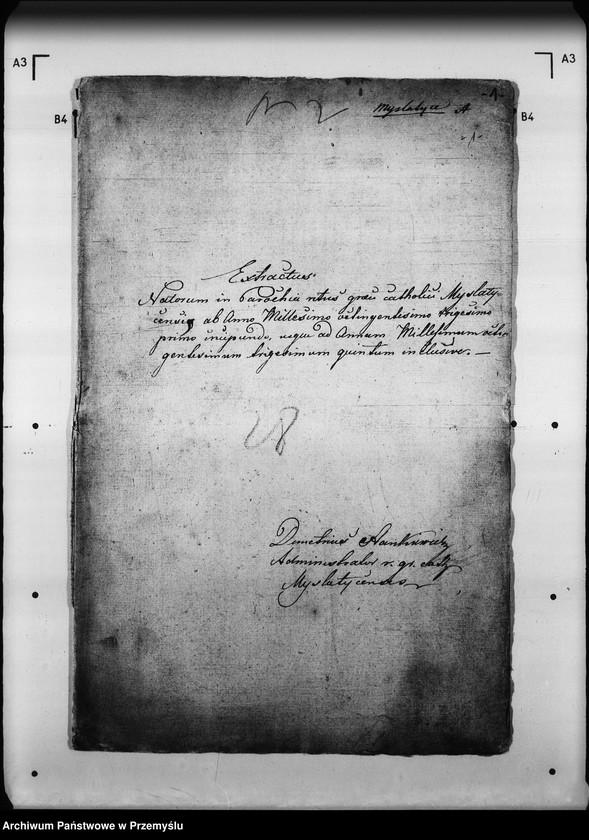 A3
A3
B4
B4
-1-
N 2
Myslatycze A
-1-
Extractus
Natorum in Parochia ritus graeci catholici Myslaty-
censis ab Anno Millesimo octingentesimo trigesimo
primo incipiendo, usque ad Annum Millesimum octin-
gentesimum trigesimum quintum inclusive. —
28
Demetrius Stankiewicz
Administrator r. gr. cath.
Myslatycensis
Archiwum Państwowe w Przemyślu